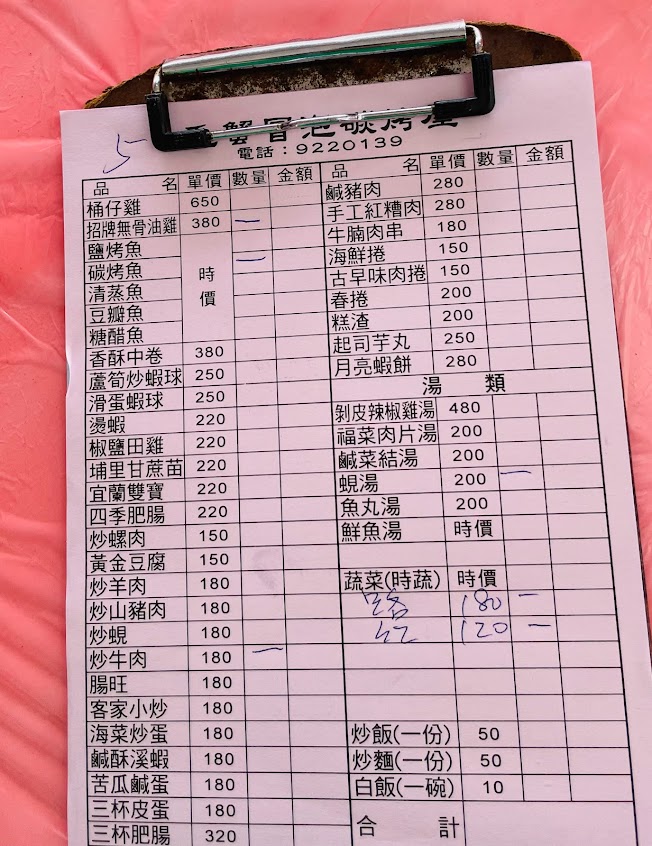 5
蟹冒泡碳烤屋
電話：9220139
品 名 單價 數量 金額
桶仔雞 650
招牌無骨油雞 380 一
鹽烤魚 一
碳烤魚
時價
清蒸魚
豆瓣魚
糖醋魚
香酥中卷 380
蘆筍炒蝦球 250
滑蛋蝦球 250
燙蝦 220
椒鹽田雞 220
埔里甘蔗苗 220
宜蘭雙寶 220
四季肥腸 220
炒螺肉 150
黃金豆腐 150
炒羊肉 180
炒山豬肉 180
炒蜆 180
炒牛肉 180 一
腸旺 180
客家小炒 180
海菜炒蛋 180
鹹酥溪蝦 180
苦瓜鹹蛋 180
三杯皮蛋 180
三杯肥腸 320
品 名 單價 數量 金額
鹹豬肉 280
手工紅糟肉 280
牛腩肉串 180
海鮮捲 150
古早味肉捲 150
春捲 200
糕渣 200
起司芋丸 250
月亮蝦餅 280
湯 類
剝皮辣椒雞湯 480
福菜肉片湯 200
鹹菜結湯 200
蜆湯 200 一
魚丸湯 200
鮮魚湯 時價
蔬菜(時蔬) 時價
180 一
120 一
炒飯(一份) 50
炒麵(一份) 50
白飯(一碗) 10
合 計